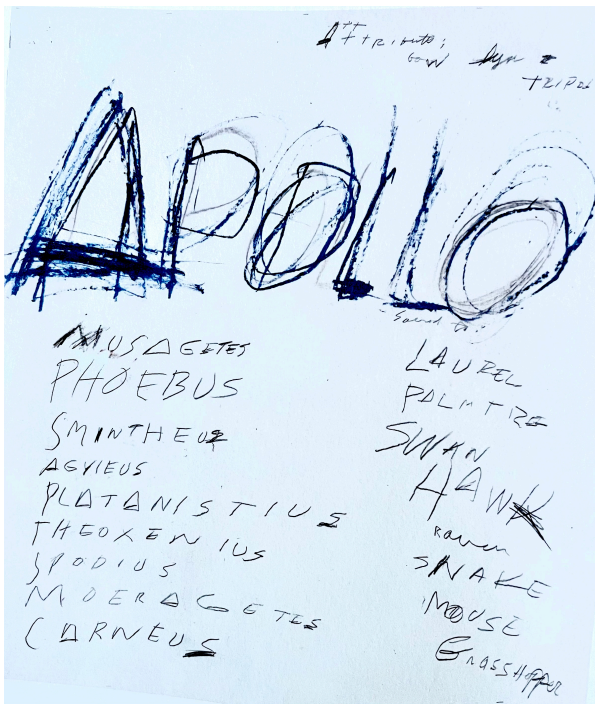 Attributes:
bow lyre
TRIPOD
APOLLO
MUSAGETES
PHOEBUS
SMINTHEUS
AGYIEUS
PLATANISTIUS
THEOXENIUS
SPODIUS
MOERAGETES
CARNEUS
Sacred to:
LAUREL
PALM TREE
SWAN
HAWK
Raven
SNAKE
MOUSE
GRASSHOPPER